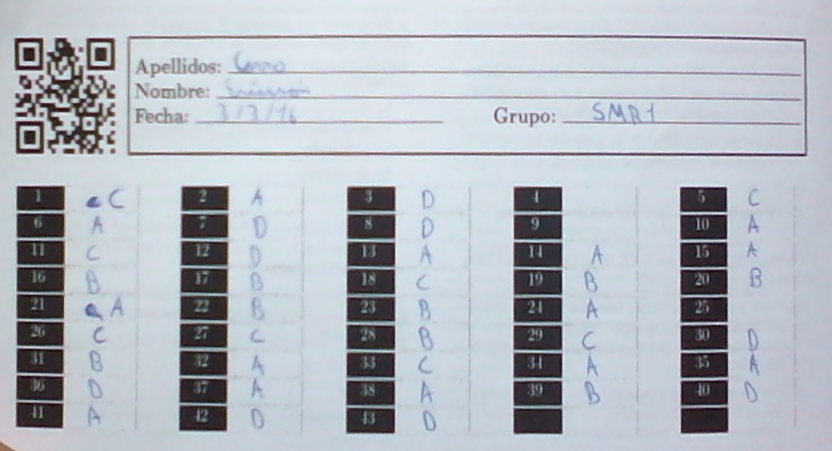 Apellidos:
Nombre:
Fecha: 3/3/16 Grupo: SMR1
1 C 2 A 3 D 4 5 C
6 A 7 D 8 D 9 10 A
11 C 12 D 13 A 14 A 15 A
16 B 17 B 18 C 19 B 20 B
21 A 22 B 23 B 24 A 25
26 C 27 C 28 B 29 C 30 D
31 B 32 A 33 C 34 A 35 A
36 D 37 A 38 A 39 B 40 D
41 A 42 D 43 D